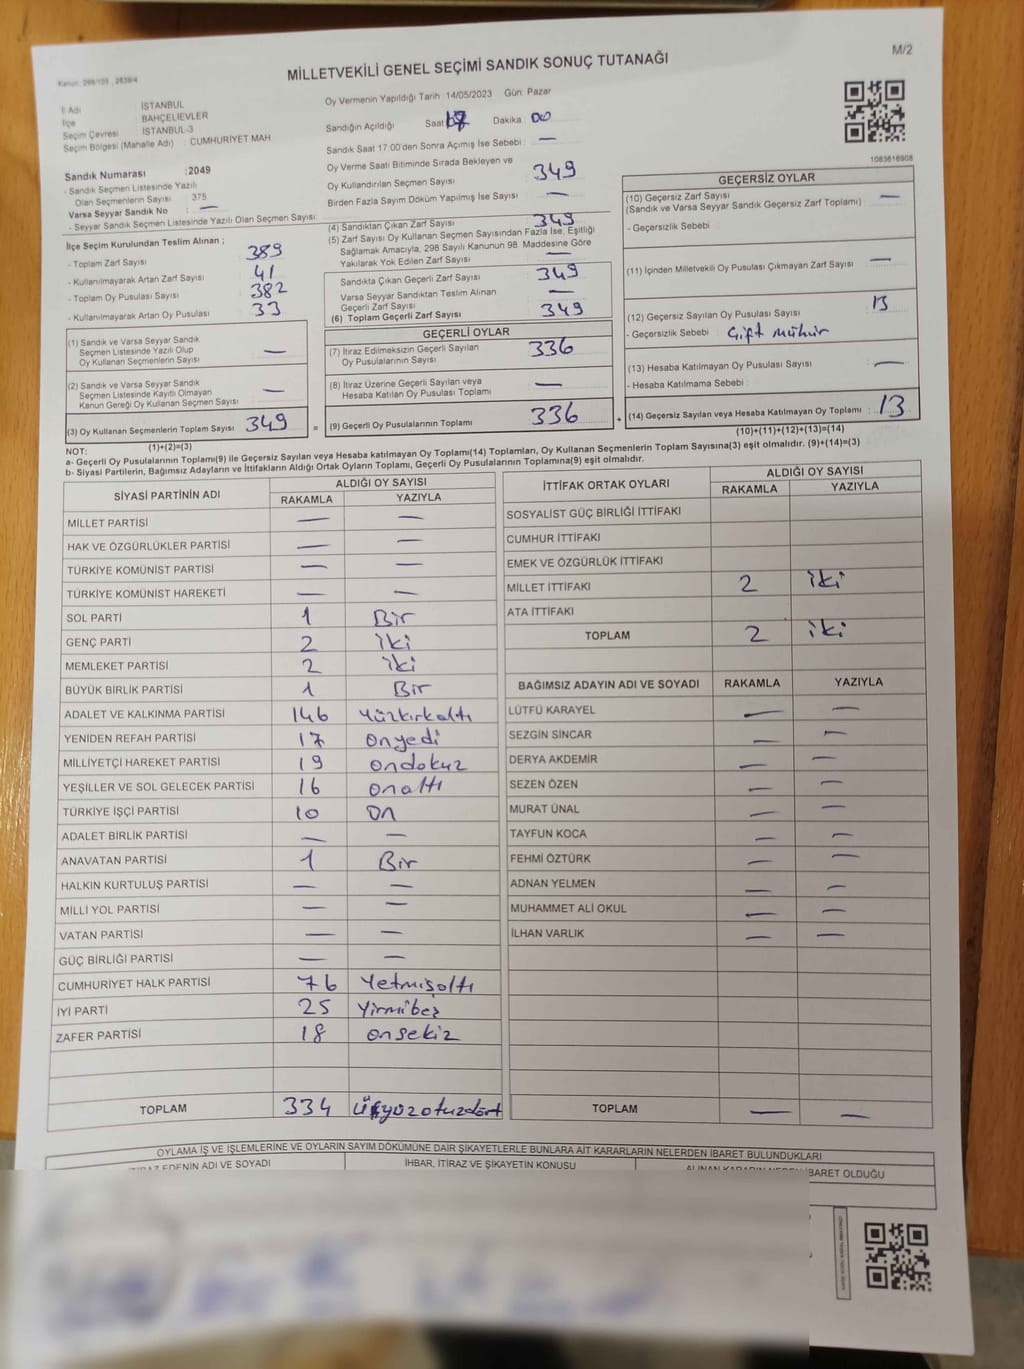 Kanun: 298/105 , 2839/4
M/2
MİLLETVEKİLİ GENEL SEÇİMİ SANDIK SONUÇ TUTANAĞI
İl Adı İSTANBUL
İlçe BAHÇELİEVLER
Seçim Çevresi İSTANBUL-3
Seçim Bölgesi (Mahalle Adı) : CUMHURİYET MAH
Sandık Numarası :2049
- Sandık Seçmen Listesinde Yazılı
Olan Seçmenlerin Sayısı 375
Varsa Seyyar Sandık No : —
- Seyyar Sandık Seçmen Listesinde Yazılı Olan Seçmen Sayısı:
Oy Vermenin Yapıldığı Tarih :14/05/2023 Gün: Pazar
Sandığın Açıldığı Saat 17 Dakika 00
Sandık Saat 17:00'den Sonra Açılmış İse Sebebi : —
Oy Verme Saati Bitiminde Sırada Bekleyen ve
Oy Kullandırılan Seçmen Sayısı 349
Birden Fazla Sayım Döküm Yapılmış İse Sayısı : —
1083616908
İlçe Seçim Kurulundan Teslim Alınan ;
- Toplam Zarf Sayısı 389
- Kullanılmayarak Artan Zarf Sayısı 41
- Toplam Oy Pusulası Sayısı 382
- Kullanılmayarak Artan Oy Pusulası 33
(1) Sandık ve Varsa Seyyar Sandık
Seçmen Listesinde Yazılı Olup
Oy Kullanan Seçmenlerin Sayısı —
(2) Sandık ve Varsa Seyyar Sandık
Seçmen Listesinde Kayıtlı Olmayan
Kanun Gereği Oy Kullanan Seçmen Sayısı —
(3) Oy Kullanan Seçmenlerin Toplam Sayısı 349
(1)+(2)=(3)
(4) Sandıktan Çıkan Zarf Sayısı 349
(5) Zarf Sayısı Oy Kullanan Seçmen Sayısından Fazla İse, Eşitliği
Sağlamak Amacıyla, 298 Sayılı Kanunun 98. Maddesine Göre
Yakılarak Yok Edilen Zarf Sayısı —
Sandıkta Çıkan Geçerli Zarf Sayısı 349
Varsa Seyyar Sandıktan Teslim Alınan
Geçerli Zarf Sayısı —
(6) Toplam Geçerli Zarf Sayısı 349
GEÇERLİ OYLAR
(7) İtiraz Edilmeksizin Geçerli Sayılan
Oy Pusulalarının Sayısı 336
(8) İtiraz Üzerine Geçerli Sayılan veya
Hesaba Katılan Oy Pusulası Toplamı —
= (9) Geçerli Oy Pusulalarının Toplamı 336 +
GEÇERSİZ OYLAR
(10) Geçersiz Zarf Sayısı
(Sandık ve Varsa Seyyar Sandık Geçersiz Zarf Toplamı) —
- Geçersizlik Sebebi :
(11) İçinden Milletvekili Oy Pusulası Çıkmayan Zarf Sayısı —
(12) Geçersiz Sayılan Oy Pusulası Sayısı 13
- Geçersizlik Sebebi : Çift mühür
(13) Hesaba Katılmayan Oy Pusulası Sayısı —
- Hesaba Katılmama Sebebi :
(14) Geçersiz Sayılan veya Hesaba Katılmayan Oy Toplamı : 13
(10)+(11)+(12)+(13)=(14)
NOT:
a- Geçerli Oy Pusulalarının Toplamı(9) ile Geçersiz Sayılan veya Hesaba katılmayan Oy Toplamı(14) Toplamları, Oy Kullanan Seçmenlerin Toplam Sayısına(3) eşit olmalıdır. (9)+(14)=(3)
b- Siyasi Partilerin, Bağımsız Adayların ve İttifakların Aldığı Ortak Oyların Toplamı, Geçerli Oy Pusulalarının Toplamına(9) eşit olmalıdır.
SİYASİ PARTİNİN ADI ALDIĞI OY SAYISI
RAKAMLA YAZIYLA
MİLLET PARTİSİ — —
HAK VE ÖZGÜRLÜKLER PARTİSİ — —
TÜRKİYE KOMÜNİST PARTİSİ — —
TÜRKİYE KOMÜNİST HAREKETİ — —
SOL PARTİ 1 Bir
GENÇ PARTİ 2 iki
MEMLEKET PARTİSİ 2 iki
BÜYÜK BİRLİK PARTİSİ 1 Bir
ADALET VE KALKINMA PARTİSİ 146 Yüzkırkaltı
YENİDEN REFAH PARTİSİ 17 onyedi
MİLLİYETÇİ HAREKET PARTİSİ 19 ondokuz
YEŞİLLER VE SOL GELECEK PARTİSİ 16 onaltı
TÜRKİYE İŞÇİ PARTİSİ 10 on
ADALET BİRLİK PARTİSİ — —
ANAVATAN PARTİSİ 1 Bir
HALKIN KURTULUŞ PARTİSİ — —
MİLLİ YOL PARTİSİ — —
VATAN PARTİSİ — —
GÜÇ BİRLİĞİ PARTİSİ — —
CUMHURİYET HALK PARTİSİ 76 Yetmişaltı
İYİ PARTİ 25 Yirmibeş
ZAFER PARTİSİ 18 onsekiz
TOPLAM 334 üçyüzotuzdört
İTTİFAK ORTAK OYLARI ALDIĞI OY SAYISI
RAKAMLA YAZIYLA
SOSYALİST GÜÇ BİRLİĞİ İTTİFAKI
CUMHUR İTTİFAKI
EMEK VE ÖZGÜRLÜK İTTİFAKI
MİLLET İTTİFAKI 2 iki
ATA İTTİFAKI
TOPLAM 2 iki
BAĞIMSIZ ADAYIN ADI VE SOYADI RAKAMLA YAZIYLA
LÜTFÜ KARAYEL — —
SEZGİN SİNCAR — —
DERYA AKDEMİR — —
SEZEN ÖZEN — —
MURAT ÜNAL — —
TAYFUN KOCA — —
FEHMİ ÖZTÜRK — —
ADNAN YELMEN — —
MUHAMMET ALİ OKUL — —
İLHAN VARLIK — —
TOPLAM — —
OYLAMA İŞ VE İŞLEMLERİNE VE OYLARIN SAYIM DÖKÜMÜNE DAİR ŞİKAYETLERLE BUNLARA AİT KARARLARIN NELERDEN İBARET BULUNDUKLARI
İTİRAZ EDENİN ADI VE SOYADI İHBAR, İTİRAZ VE ŞİKAYETİN KONUSU ALINAN KARARIN NEDEN İBARET OLDUĞU